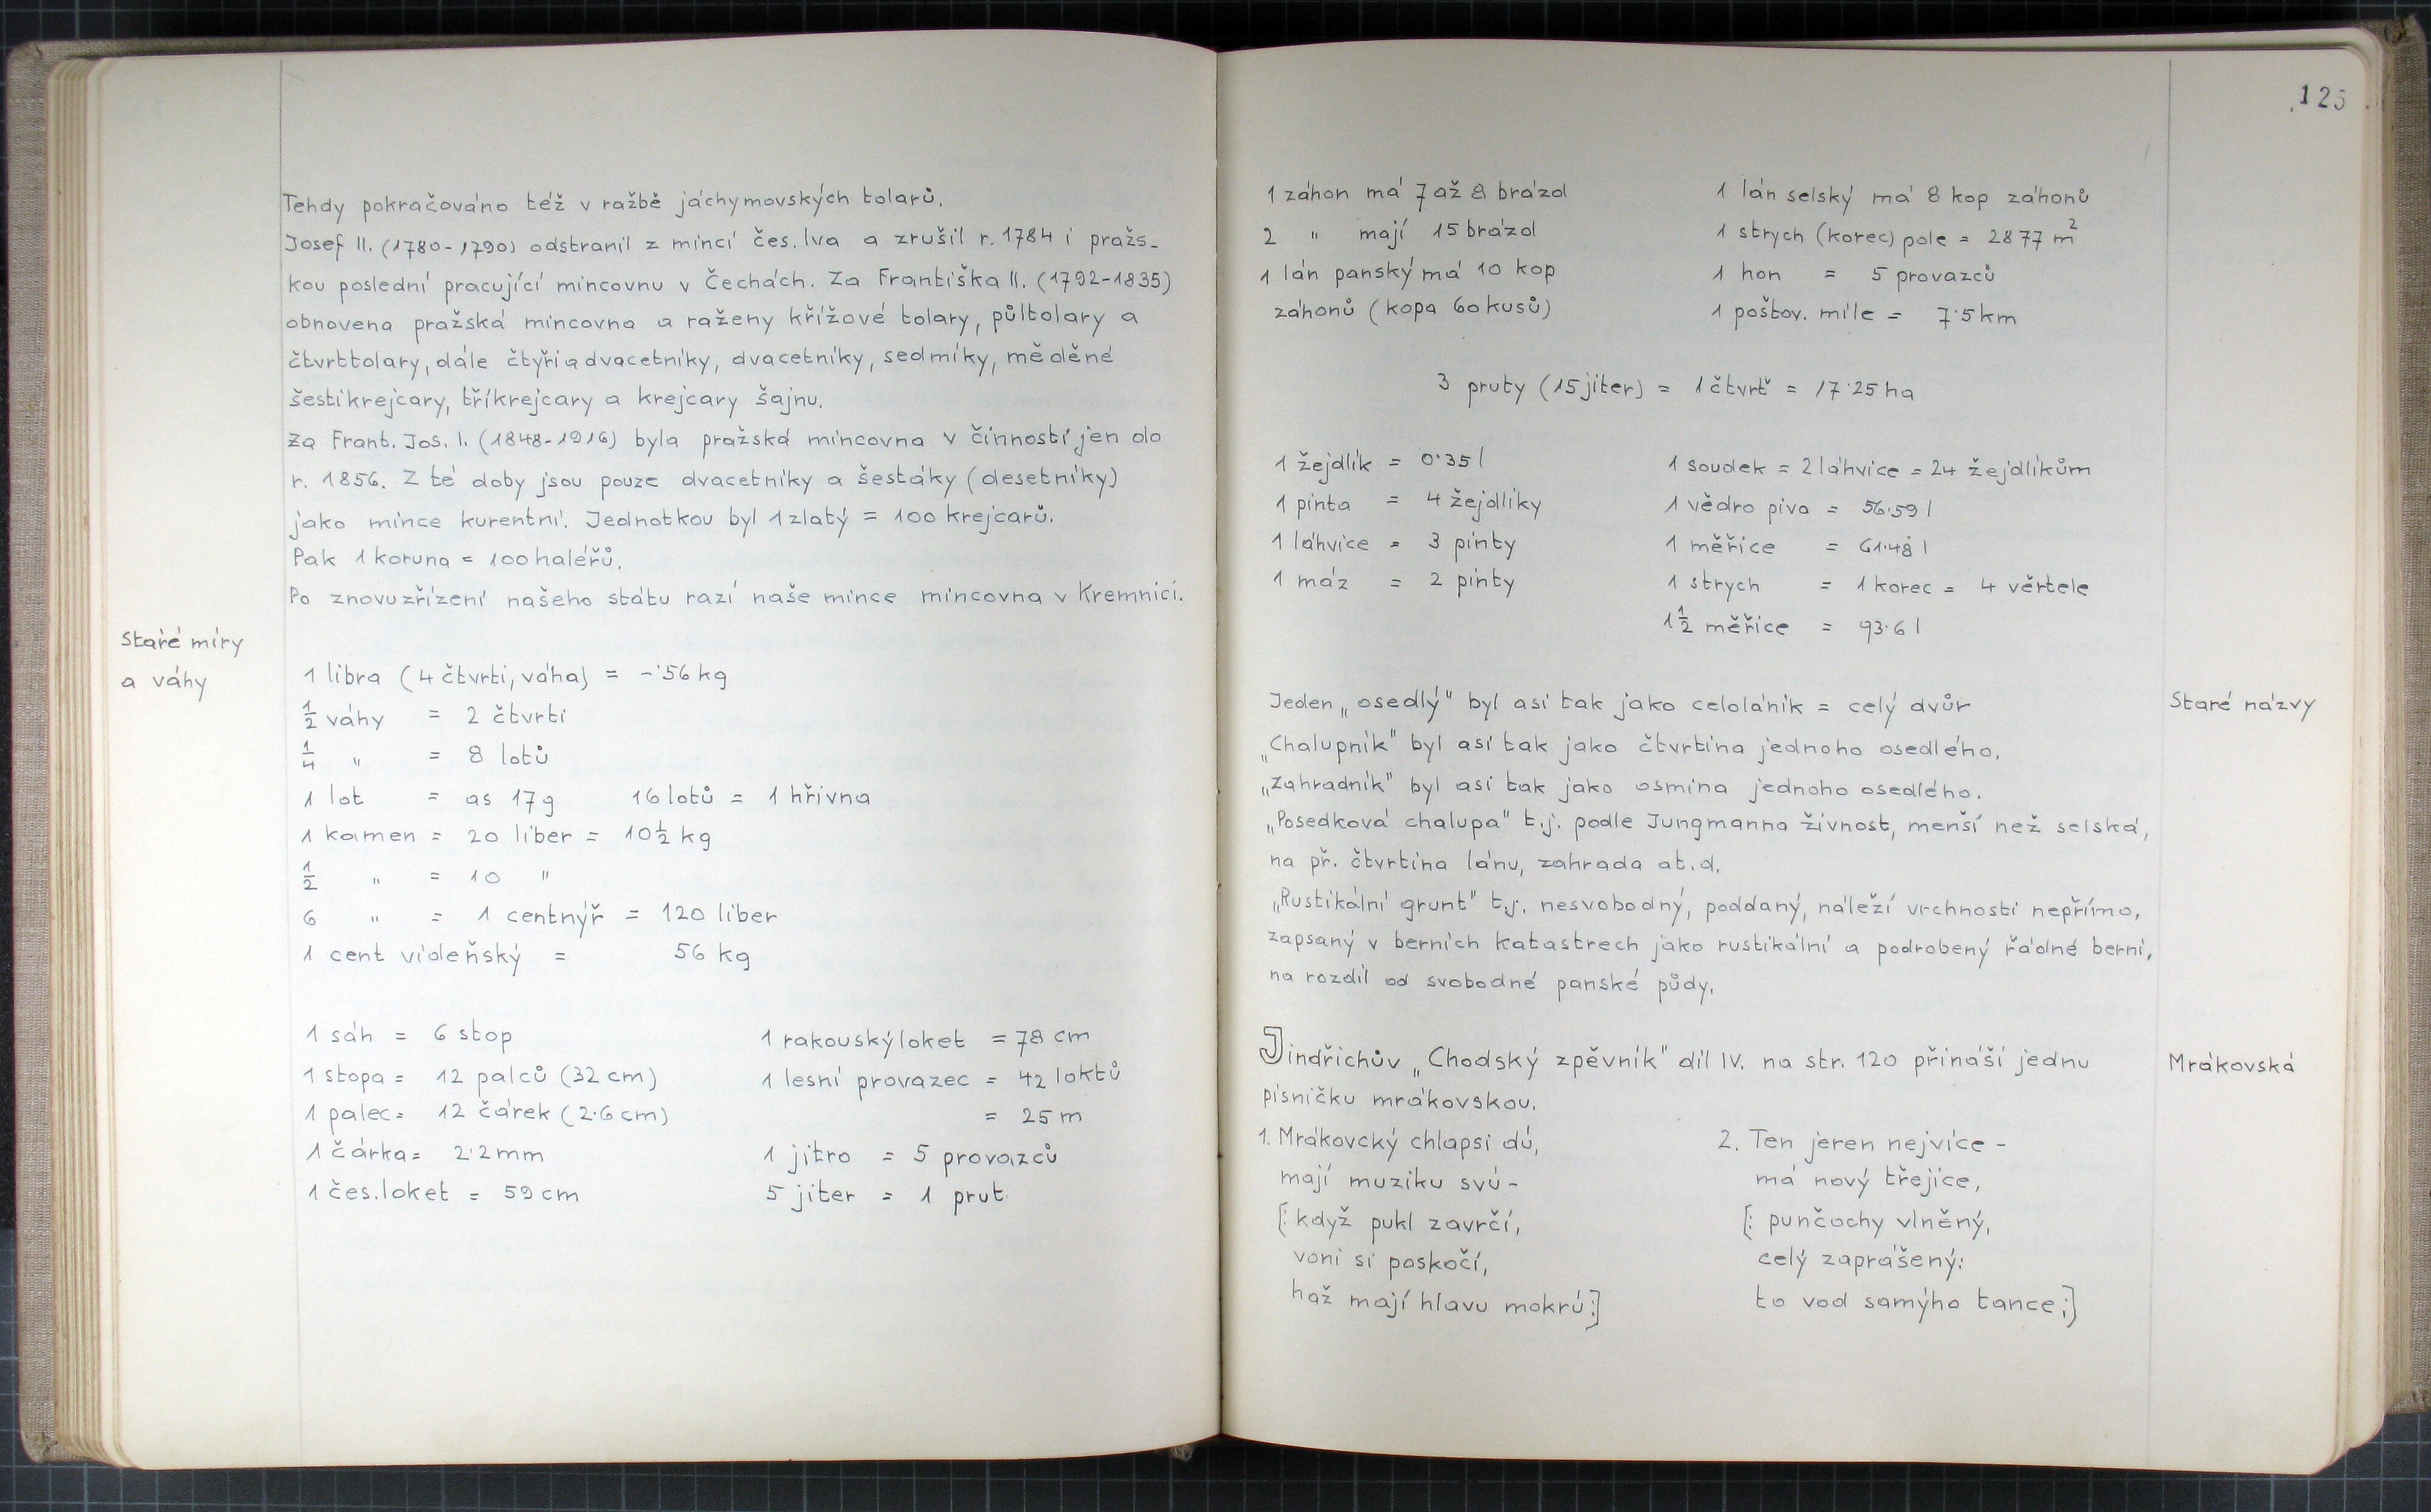 Tehdy pokračováno též v ražbě jáchymovských tolarů.
Josef II. (1780-1790) odstranil z mincí čes. lva a zrušil r. 1784 i pražs-
kou poslední pracující mincovnu v Čechách. Za Františka II. (1792-1835)
obnovena pražská mincovna a raženy křížové tolary, půltolary a
čtvrttolary, dále čtyřiadvacetníky, dvacetníky, sedmíky, měděné
šestikrejcary, tříkrejcary a krejcary šajnu.
Za Frant. Jos. I. (1848-1916) byla pražská mincovna v činnosti jen do
r. 1856. Z té doby jsou pouze dvacetníky a šestáky (desetníky)
jako mince kurentní. Jednotkou byl 1 zlatý = 100 krejcarů.
Pak 1 koruna = 100 haléřů.
Po znovuzřízení našeho státu razí naše mince mincovna v Kremnici.
Staré míry
a váhy
1 libra (4 čtvrti, váha) = -·56 kg
½ váhy = 2 čtvrti
¼ " = 8 lotů
1 lot = as 17 g 16 lotů = 1 hřivna
1 kamen = 20 liber = 10½ kg
½ " = 10 "
6 " = 1 centnýř = 120 liber
1 cent vídeňský = 56 kg
1 sáh = 6 stop
1 stopa = 12 palců (32 cm)
1 palec = 12 čárek (2·6 cm)
1 čárka = 2·2 mm
1 čes. loket = 59 cm
1 rakouský loket = 78 cm
1 lesní provazec = 42 loktů
= 25 m
1 jitro = 5 provazců
5 jiter = 1 prut
125
1 záhon má 7 až 8 brázd
2 " mají 15 brázd
1 lán panský má 10 kop
záhonů (kopa 60 kusů)
1 lán selský má 8 kop záhonů
1 strych (korec) pole = 2877 m²
1 hon = 5 provazců
1 poštov. míle = 7·5 km
3 pruty (15 jiter) = 1 čtvrť = 17·25 ha
1 žejdlík = 0·35 l
1 pinta = 4 žejdlíky
1 láhvice = 3 pinty
1 máz = 2 pinty
1 soudek = 2 láhvice = 24 žejdlíkům
1 vědro piva = 56·59 l
1 měřice = 61·48 l
1 strych = 1 korec = 4 věrtele
1½ měřice = 93·6 l
Staré názvy
Jeden „osedlý" byl asi tak jako celoláník = celý dvůr
„Chalupník" byl asi tak jako čtvrtina jednoho osedlého.
„Zahradník" byl asi tak jako osmina jednoho osedlého.
„Posedková chalupa" t.j. podle Jungmanna živnost, menší než selská,
na př. čtvrtina lánu, zahrada at.d.
„Rustikální grunt" t.j. nesvobodný, poddaný, náleží vrchnosti nepřímo,
zapsaný v berních katastrech jako rustikální a podrobený řádné berni,
na rozdíl od svobodné panské půdy.
Mrákovská
Jindřichův „Chodský zpěvník" díl IV. na str. 120 přináší jednu
písničku mrákovskou.
1. Mrákovcký chlapsi dú,
mají muziku svú-
[: když pukl zavrčí,
voni si poskočí,
haž mají hlavu mokrú:]
2. Ten jeren nejvíce -
má nový třejice,
[: punčochy vlněný,
celý zaprášený:
to vod samýho tance:]